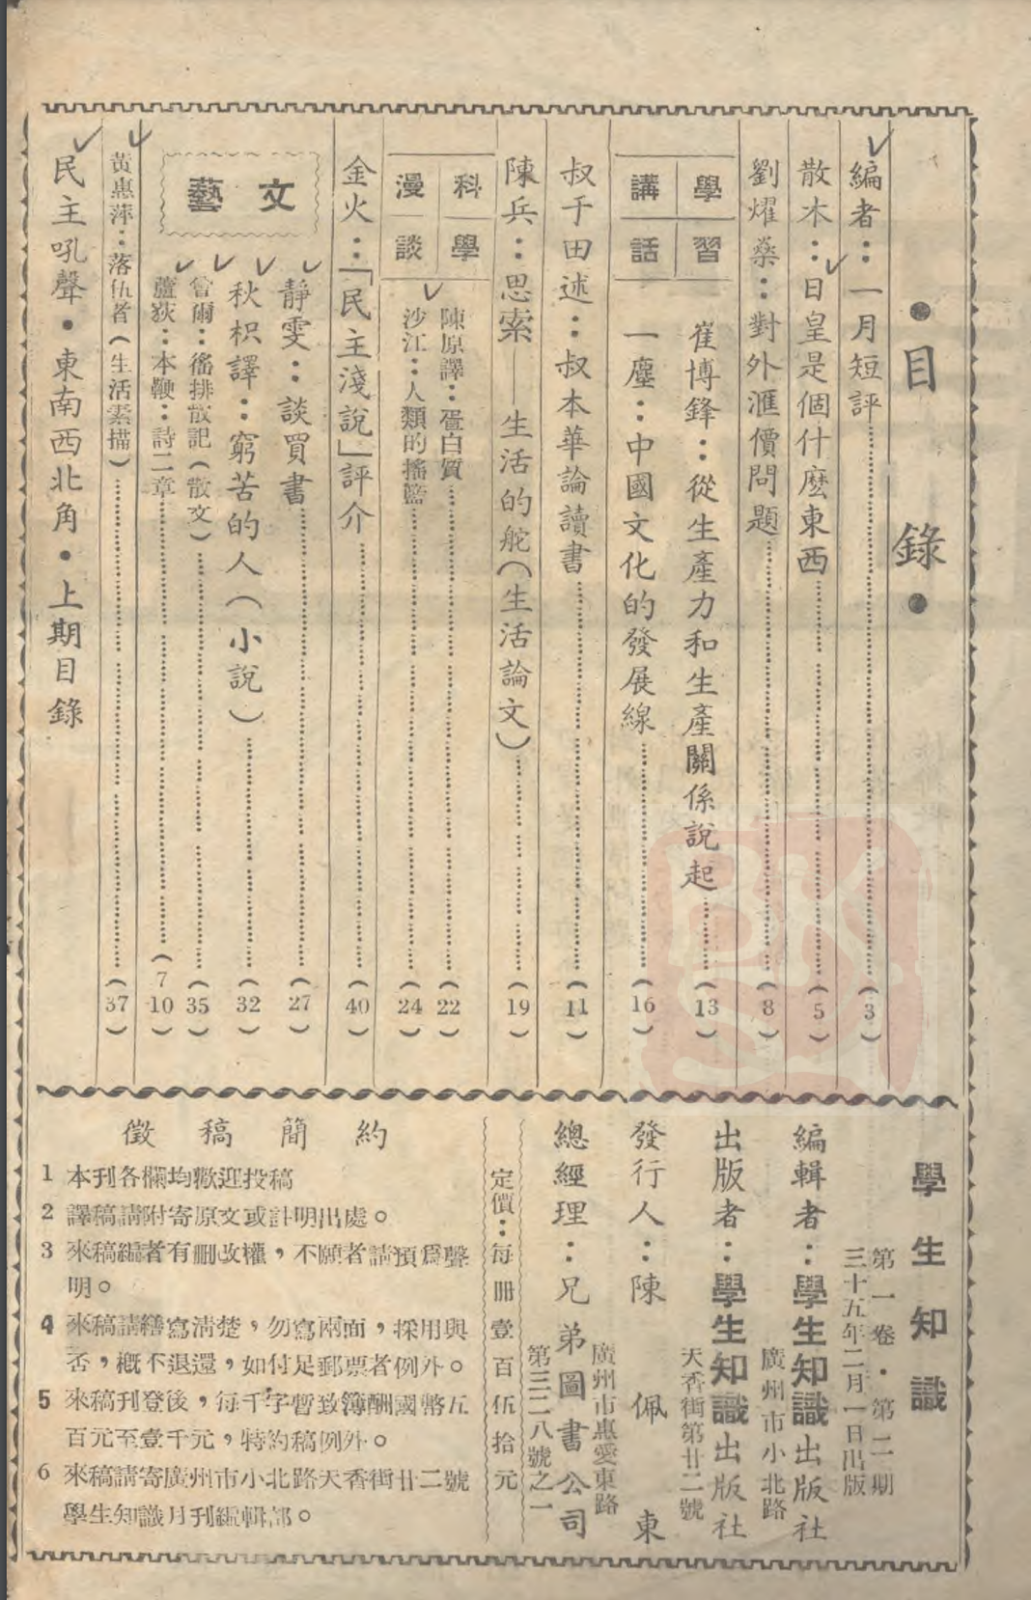 •目錄•
編者：一月短評（3）
散木：日皇是個什麼東西（5）
劉燿燊：對外滙價問題（8）
學習講話
崔博鋒：從生產力和生產關係說起（13）
一塵：中國文化的發展線（16）
叔于田述：叔本華論讀書（11）
陳兵：思索——生活的舵（生活論文）（19）
科學漫談
陳原譯：蛋白質（22）
沙江：人類的搖籃（24）
金火：「民主淺說」評介（40）
文藝
靜雯：談買書（27）
秋枳譯：窮苦的人（小說）（32）
曾爾：徭排散記（散文）（35）
蘆荻：本鞭：詩二章（7 10）
黃惠萍：落伍者（生活素描）（37）
民主吼聲•東南西北角•上期目錄
學生知識
第一卷•第二期
三十五年二月一日出版
編輯者：學生知識出版社
廣州市小北路
天香街第廿二號
出版者：學生知識出版社
發行人：陳佩東
廣州市惠愛東路
第三二八號之一
總經理：兄弟圖書公司
定價：每冊壹百伍拾元
徵稿簡約
1 本刊各欄均歡迎投稿
2 譯稿請附寄原文或註明出處。
3 來稿編者有刪改權，不願者請預爲聲
明。
4 來稿請繕寫清楚，勿寫兩面，採用與
否，概不退還，如付足郵票者例外。
5 來稿刊登後，每千字暫致薄酬國幣五
百元至壹千元，特約稿例外。
6 來稿請寄廣州市小北路天香街廿二號
學生知識月刊編輯部。